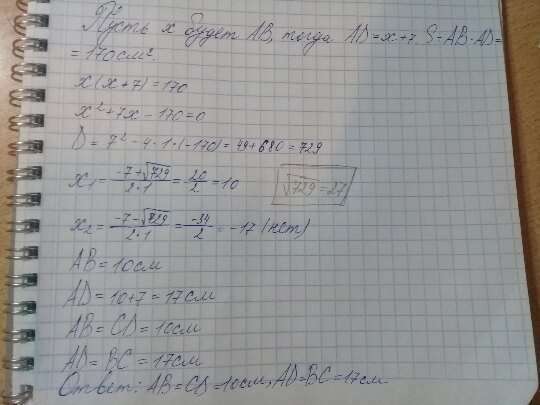 Пусть x будет AB, тогда AD=x+7. S=AB·AD=
=170см².
x(x+7)=170
x²+7x-170=0
D=7²-4·1·(-170)=49+680=729
x₁=(-7+√729)/(2·1)=20/2=10 √729=27
x₂=(-7-√729)/(2·1)=-34/2=-17 (нет)
AB=10см
AD=10+7=17см
AB=CD=10см
AD=BC=17см
Ответ: AB=CD=10см, AD=BC=17см